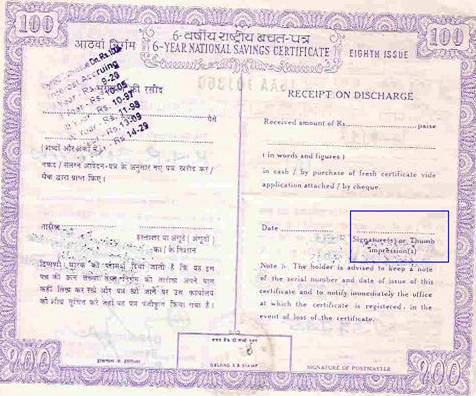 100
100
6-वर्षीय राष्ट्रीय बचत-पत्र
आठवां निर्गम
6-YEAR NATIONAL SAVINGS CERTIFICATE
EIGHTH ISSUE
Accruing
9-20
10-05
10-97
11-98
13-09
Rs. 14-29
की रसीद
RECEIPT ON DISCHARGE
Received amount of Rs. paise
पैसे
(शब्दों और अंकों में)
( in words and figures )
नकद / संलग्न आवेदन-पत्र के अनुसार नए पत्र खरीद कर /
चैक द्वारा प्राप्त किए।
in cash / by purchase of fresh certificate vide
application attached / by cheque.
तारीख
Date
हस्ताक्षर या अंगूठे (अंगूठों)
का / के निशान
Signature(s) or Thumb
impression(s)
टिप्पणी: धारक को परामर्श दिया जाता है कि वह इस
पत्र की क्रम संख्या तथा निर्गम की तारीख अपने पास
कहीं लिख कर रखे और पत्र खो जाने पर उस कार्यालय
को शीघ्र सूचित करे जहाँ वह पत्र पंजीकृत किया गया है।
Note :- The holder is advised to keep a note
of the serial number and date of issue of this
certificate and to notify immediately the office
at which the certificate is registered, in the
event of loss of the certificate.
100
100
SIGNATURE OF POSTMASTER